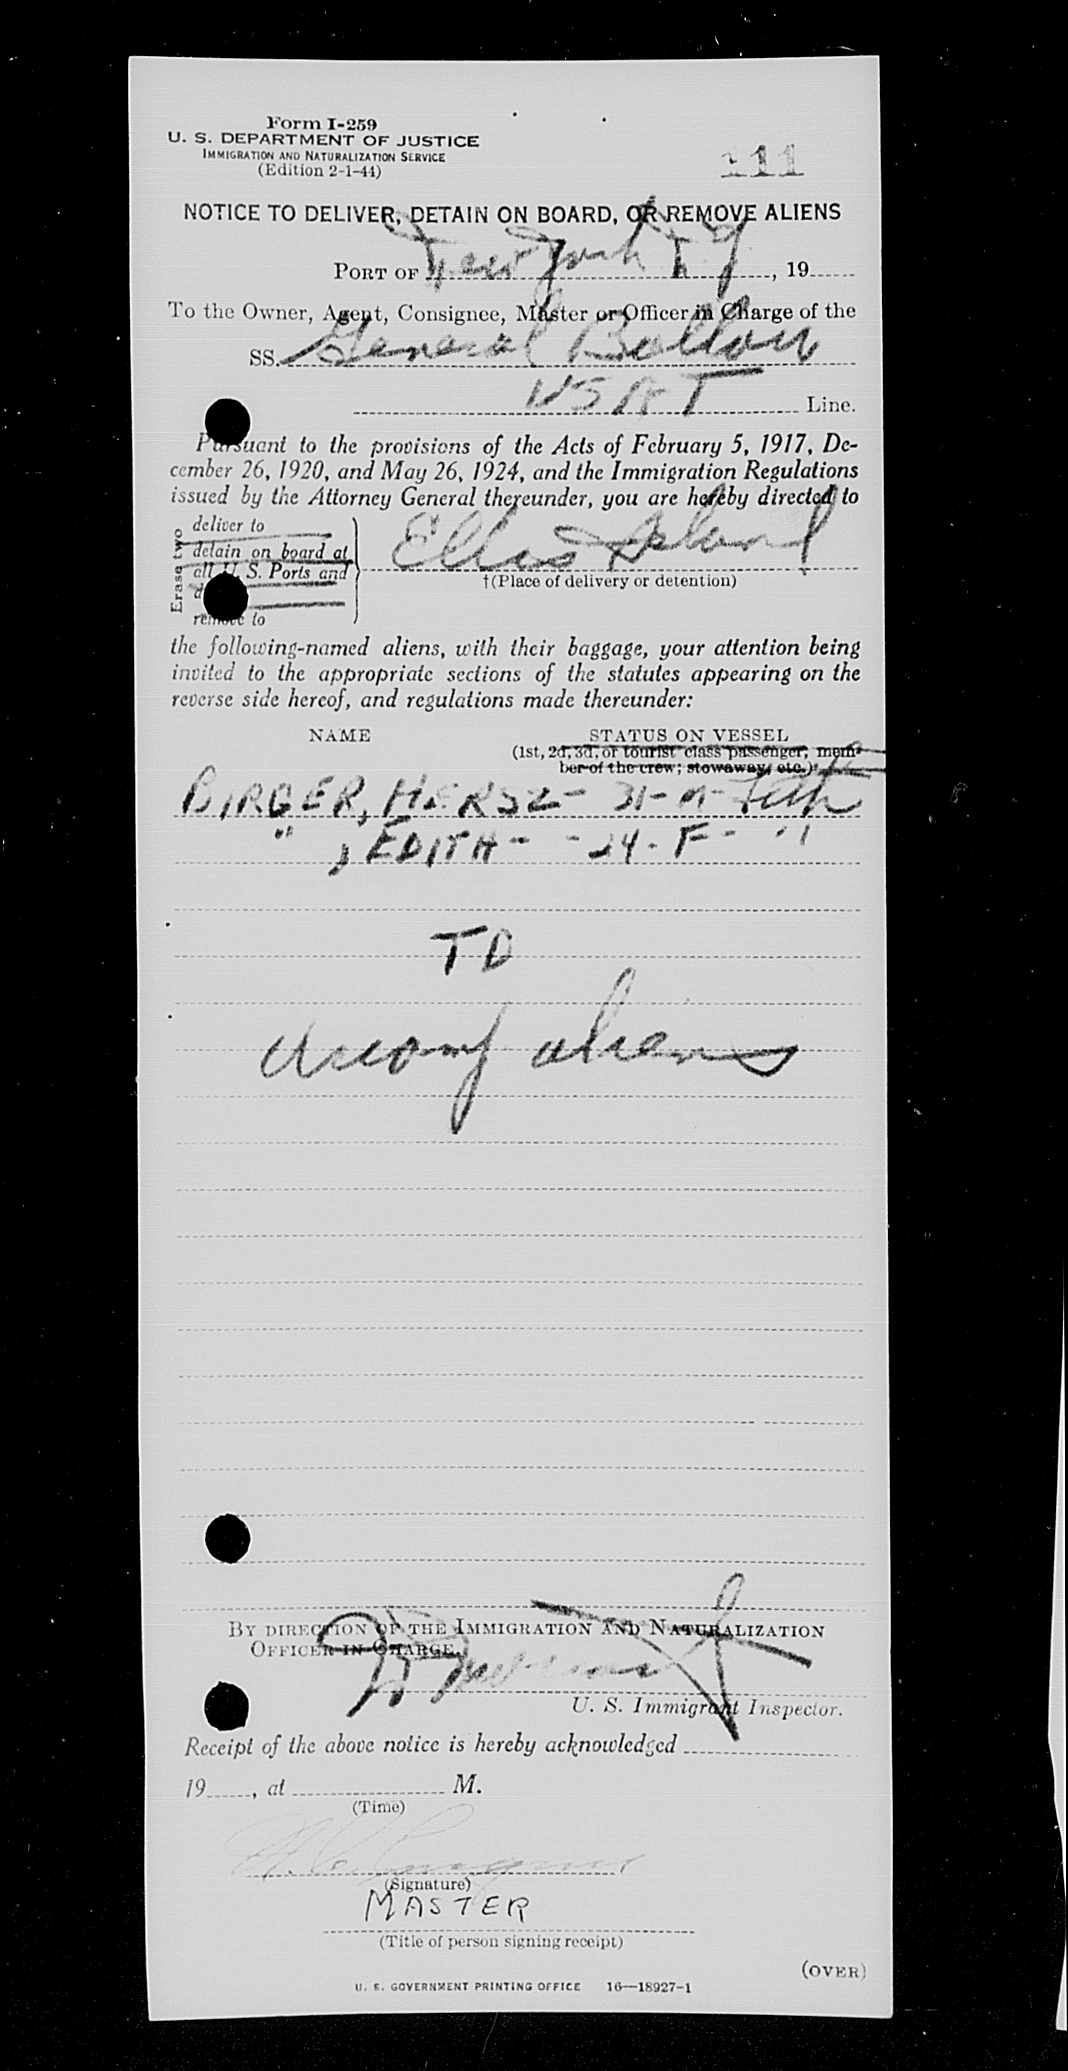 Form I-259
U. S. DEPARTMENT OF JUSTICE
IMMIGRATION AND NATURALIZATION SERVICE
(Edition 2-1-44)
111
NOTICE TO DELIVER, DETAIN ON BOARD, OR REMOVE ALIENS
PORT OF New York N Y, 19
To the Owner, Agent, Consignee, Master or Officer in Charge of the
SS. General Ballou
USAT Line.
Pursuant to the provisions of the Acts of February 5, 1917, De-
cember 26, 1920, and May 26, 1924, and the Immigration Regulations
issued by the Attorney General thereunder, you are hereby directed to
Erase two
deliver to
detain on board at
all U. S. Ports and
d
remove to
Ellis Island
†(Place of delivery or detention)
the following-named aliens, with their baggage, your attention being
invited to the appropriate sections of the statutes appearing on the
reverse side hereof, and regulations made thereunder:
NAME
STATUS ON VESSEL
(1st, 2d, 3d, or tourist class passenger; mem-
ber of the crew; stowaway, etc.)
BIRGER, HERSZ - 31 - M - Lith
" , EDITH - - 24 - F - "
TD
aliens
BY DIRECTION OF THE IMMIGRATION AND NATURALIZATION
OFFICER IN CHARGE.
U. S. Immigrant Inspector.
Receipt of the above notice is hereby acknowledged
19, at M.
(Time)
(Signature)
MASTER
(Title of person signing receipt)
(OVER)
U. S. GOVERNMENT PRINTING OFFICE 16—18927-1